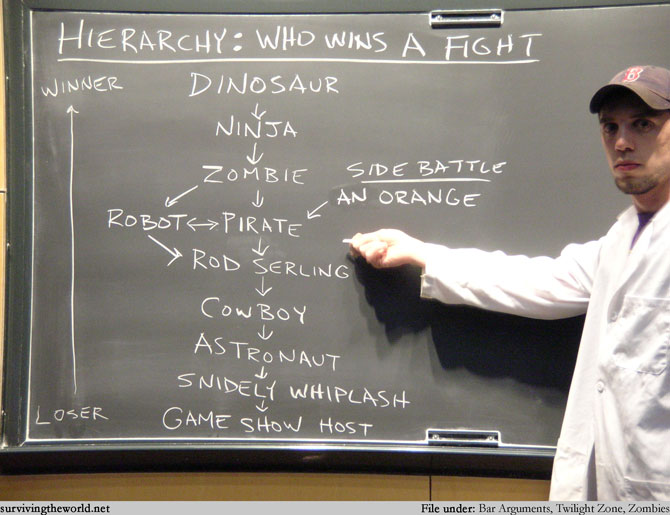 HIERARCHY: WHO WINS A FIGHT
WINNER
DINOSAUR
NINJA
ZOMBIE
SIDE BATTLE
AN ORANGE
ROBOT ↔ PIRATE
ROD SERLING
COWBOY
ASTRONAUT
SNIDELY WHIPLASH
LOSER
GAME SHOW HOST
B
survivingtheworld.net
File under: Bar Arguments, Twilight Zone, Zombies